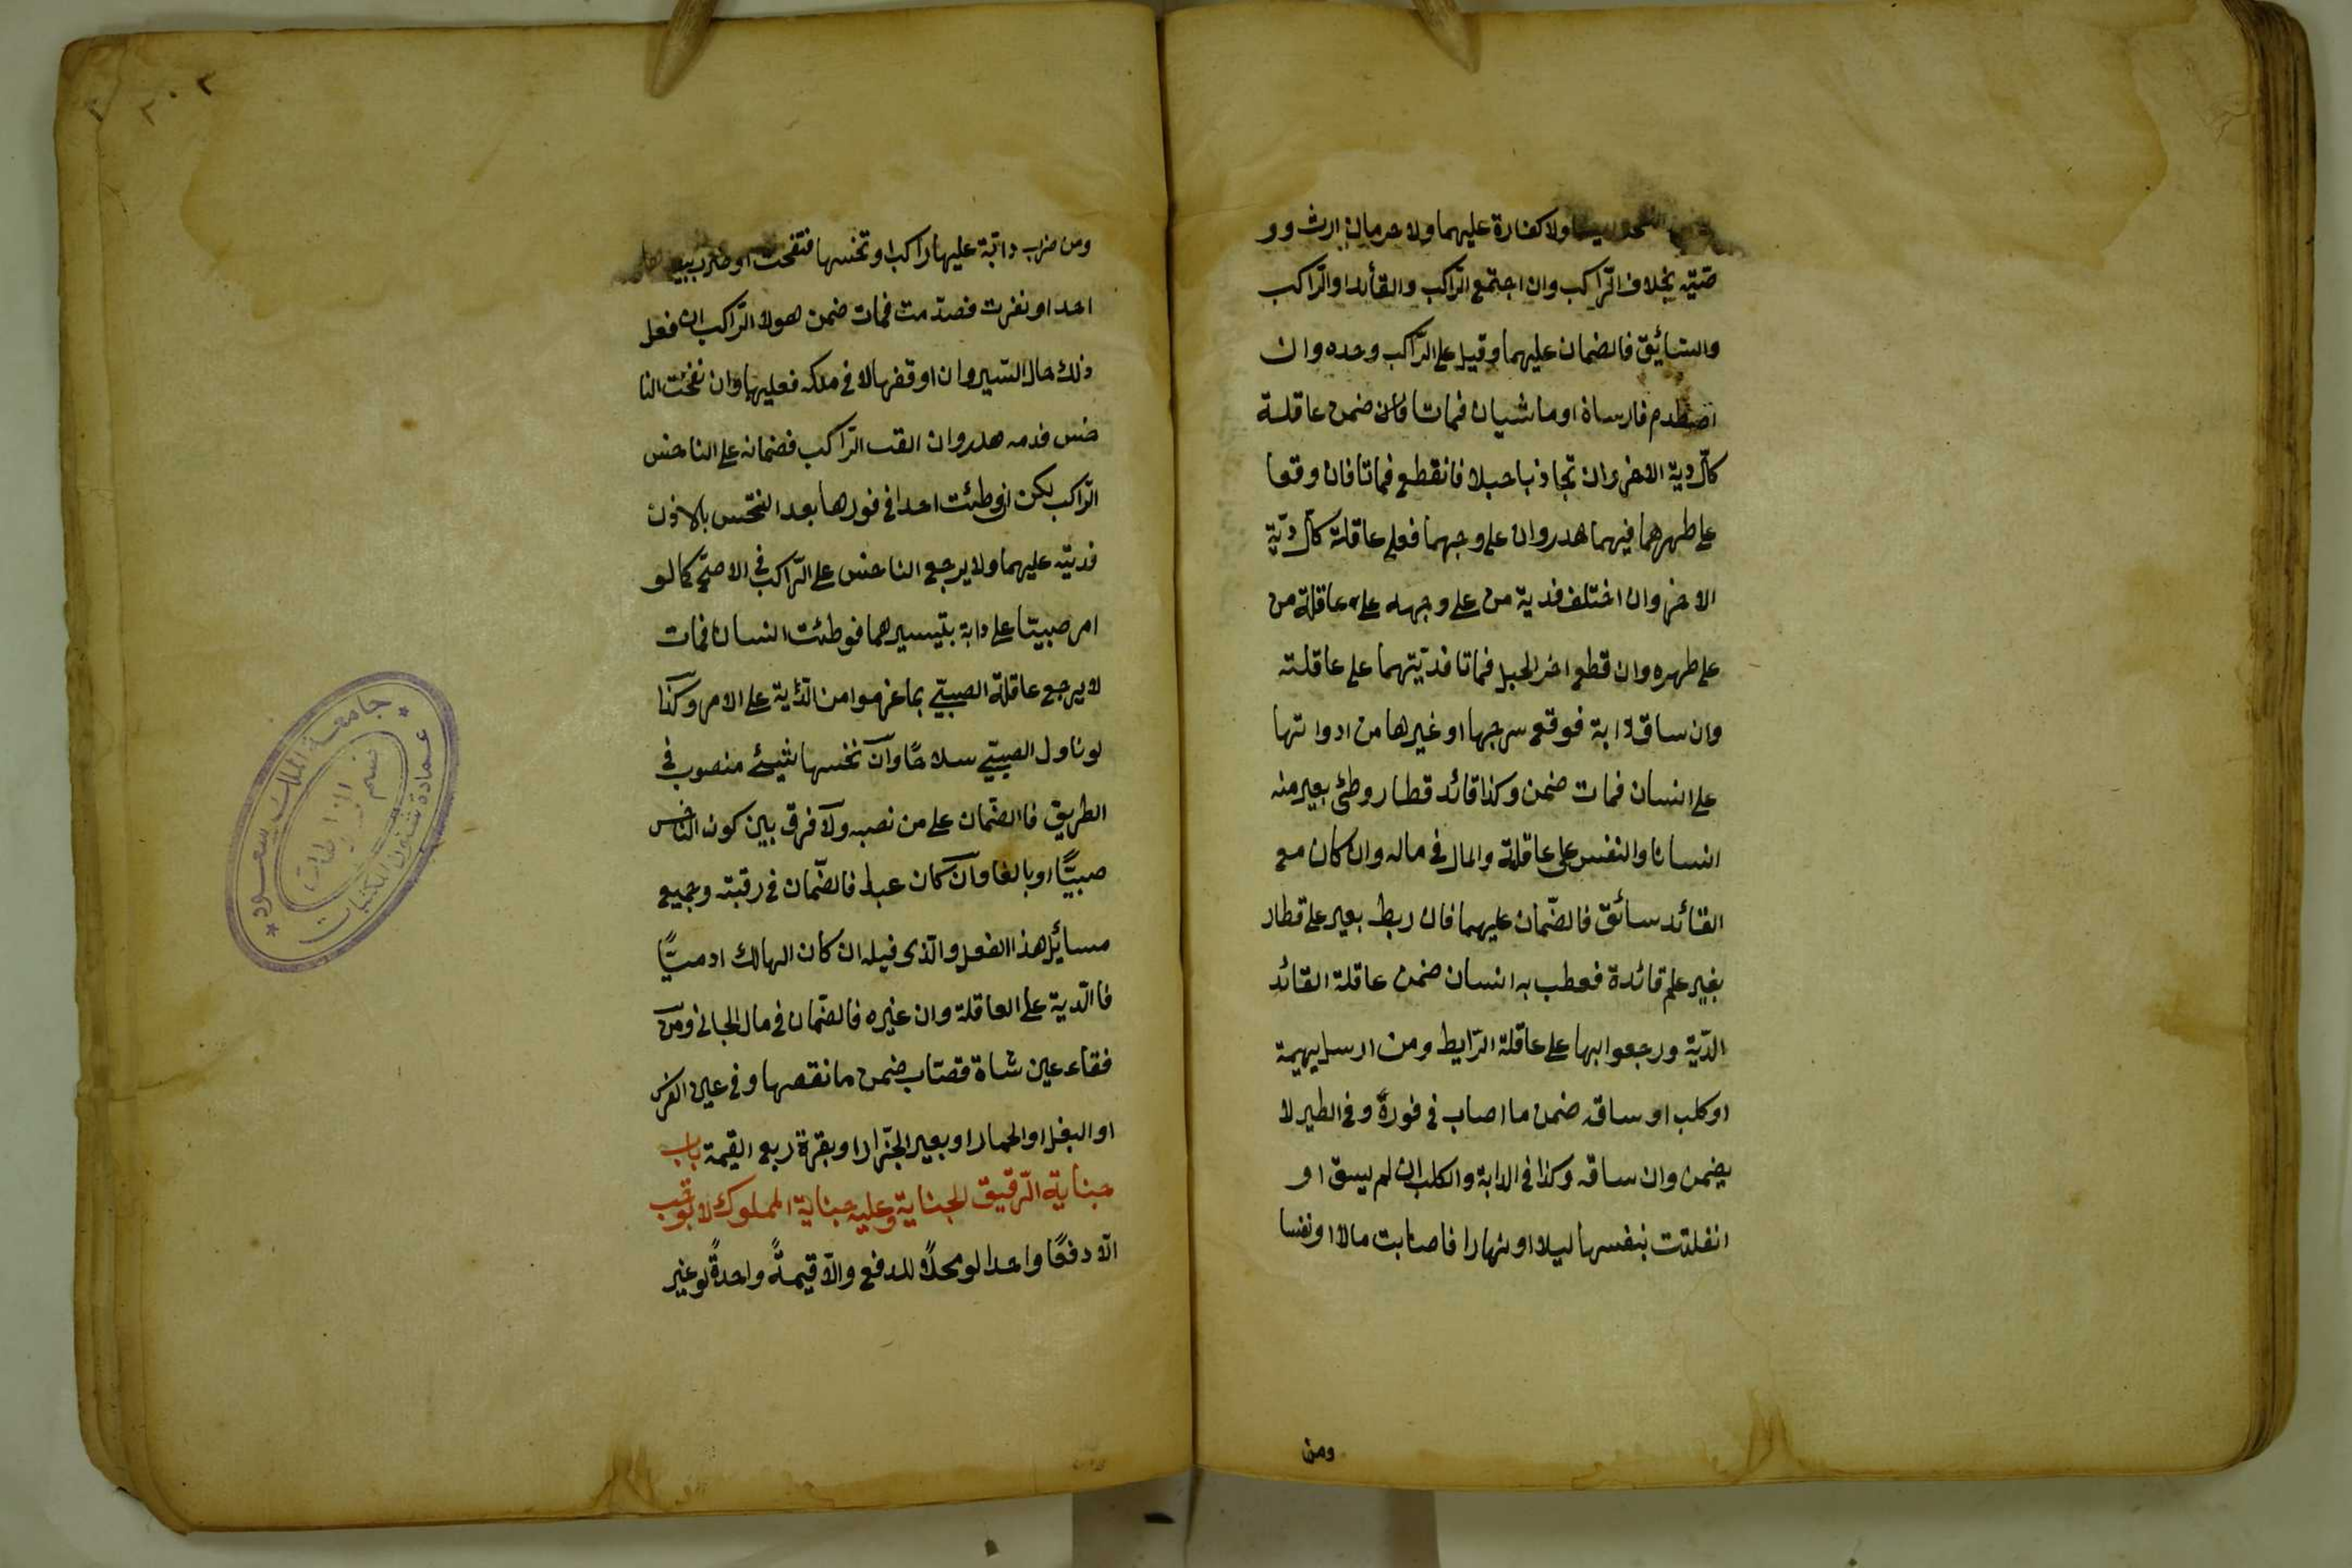 ولا كفارة عليهما ولا حرمان ارث وو
صيّه بخلاف الرّاكب وان اجتمع الرّاكب والقائد او الرّاكب
والسّائق فالضمان عليهما وقيل على الرّاكب وحده وان
اصطدم فارسان او ماشيان فماتا ضمن عاقلة
كلّ دية الاخر وان تجاذبا حبلا فانقطع فماتا فان وقعا
على ظهرهما فيهما هدر وان على وجهما فعلى عاقلة كلّ ديّة
الاخر وان اختلف فدية من على وجهه على عاقلة من
على ظهره وان قطع اخر الحبل فماتا فديّتهما على عاقلته
وان ساق دابة فوقع سرجها او غيرها من ادواتها
على انسان فمات ضمن وكذا قائد قطار وطئ بعير منه
انسانا والنفس على عاقلة والمال في ماله وان كان مع
القائد سائق فالضّمان عليهما فان ربط بعير على قطار
بغير علم قائدة فعطب به انسان ضمن عاقلة القائد
الدّيّة ورجعوا بها على عاقلة الرّابط ومن ارسل بهيمة
او كلب او ساقه ضمن ما اصاب في فورهّ وفي الطير لا
يضمن وان ساقه وكذا في الدابة والكلب ان لم يسق او
انفلتت بنفسها ليلا او نهارا فاصابت مالا او نفسا
ومن
ومن ضرب دابّة عليها راكب او نخسها فنفحت او ضرب بيدها
احدا او نفرت فصدّمت فمات ضمن هو لا الرّاكب ان فعل
ذلك حال السّير وان اوقفها لا في ملكه فعليهما وان نفحت النا
خس فدمه هدر وان القت الرّاكب فضمانه على الناخس
الرّاكب لكن ان وطئت احدا في فورها بعد النخس بالاذن
فديّته عليهما ولا يرجع الناخس على الرّاكب في الاصحّ كما لو
امر صبيّا على دابة بتيسيرهما فوطئت انسانا فمات
لا يرجع عاقلة الصبيّ بما غرموا من الدّية على الامر وكذا
لو ناول الصبيّ سلاحًا وان نخسها شيئ منصوب في
الطريق فالضّمان على من نصبه ولا فرق بين كون الناخس
صبيًّا او بالغا وان كان عبدا فالضّمان في رقبته وجميع
مسائل هذا الفصل والّذي قبله ان كان الهالك ادميًّا
فالدّية على العاقلة وان غيره فالضّمان في مال الجاني ومن
فقاء عين شاة قصّاب ضمن ما نقصها وفي عين الفرس
او البغل او الحمار او بعير الجزّار او بقرة ربع القيمة باب
جناية الرّقيق الجناية وعليه جناية المملوك لا توجب
الّا دفعًا واحدا لو محلًّا للدفع والّا قيمةً واحدةً لو غير
٢٠٢
جامعة الملك سعود
عمادة شئون المكتبات
قسم المخطوطات